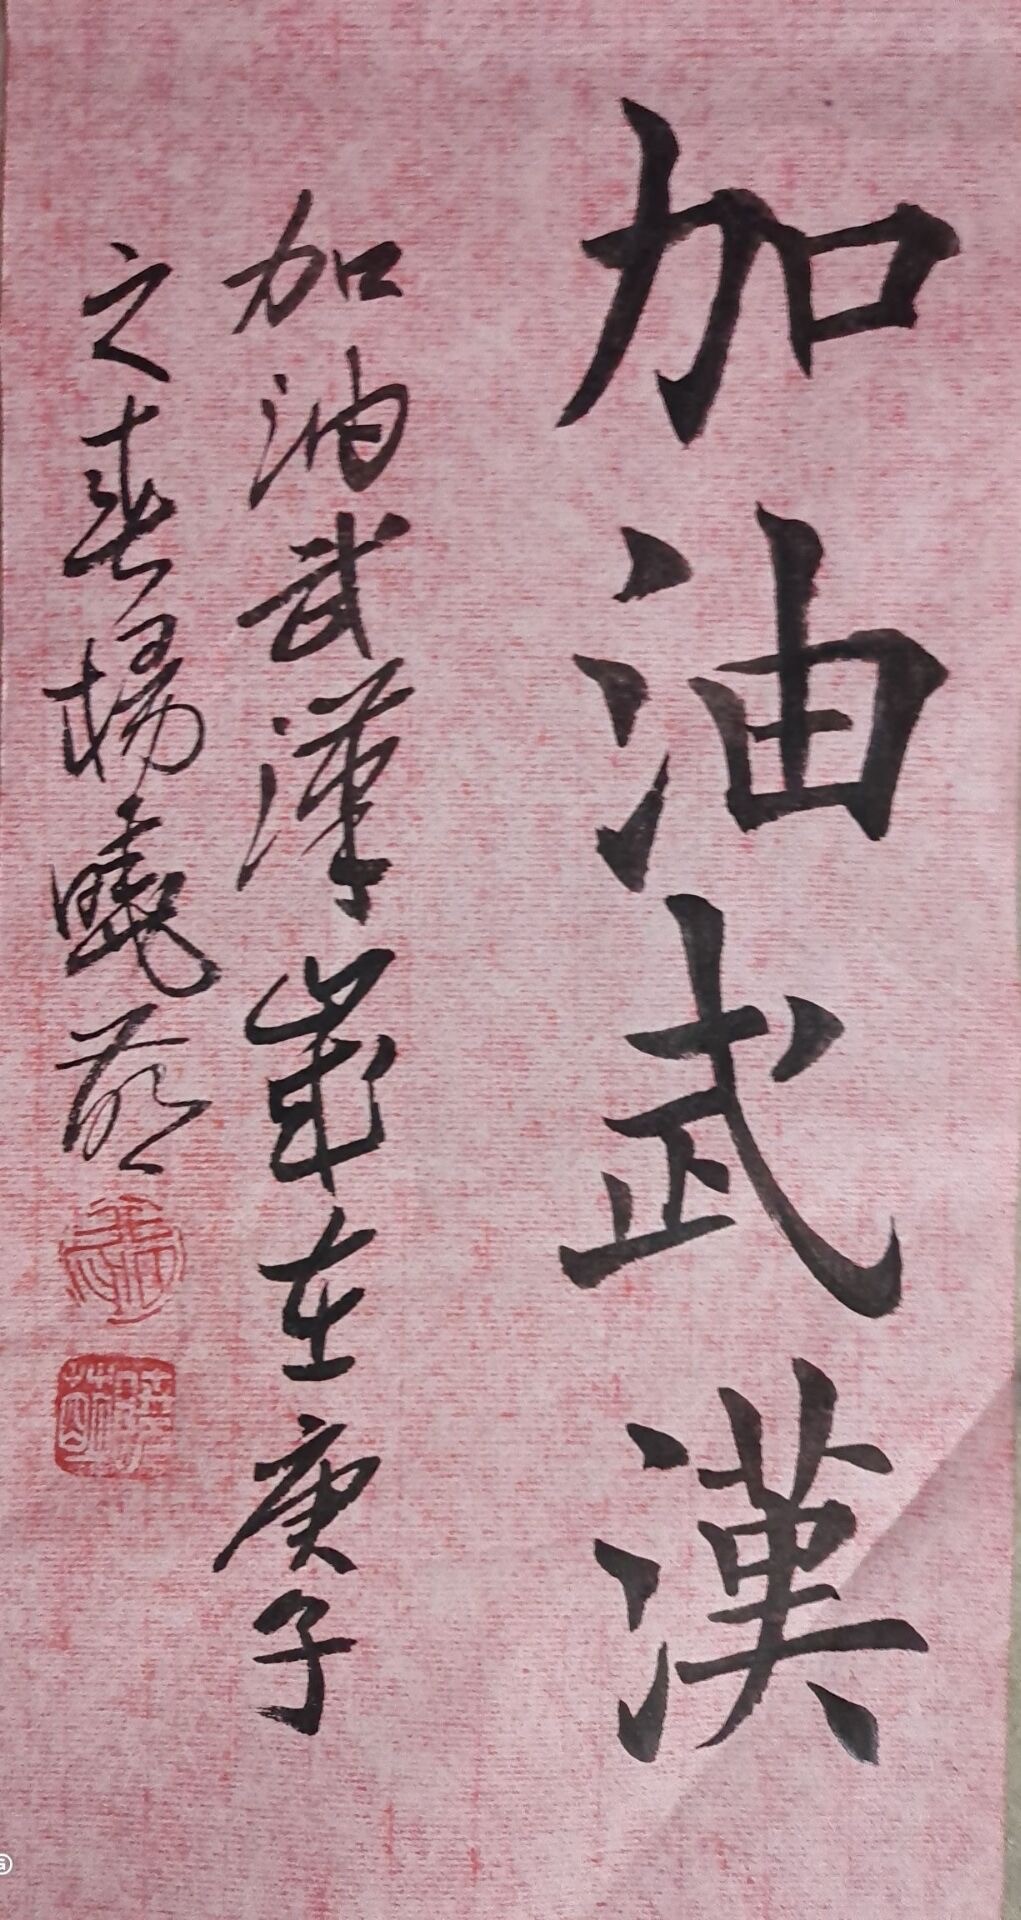 加油武漢
加油武漢歲在庚子
之春楊曉